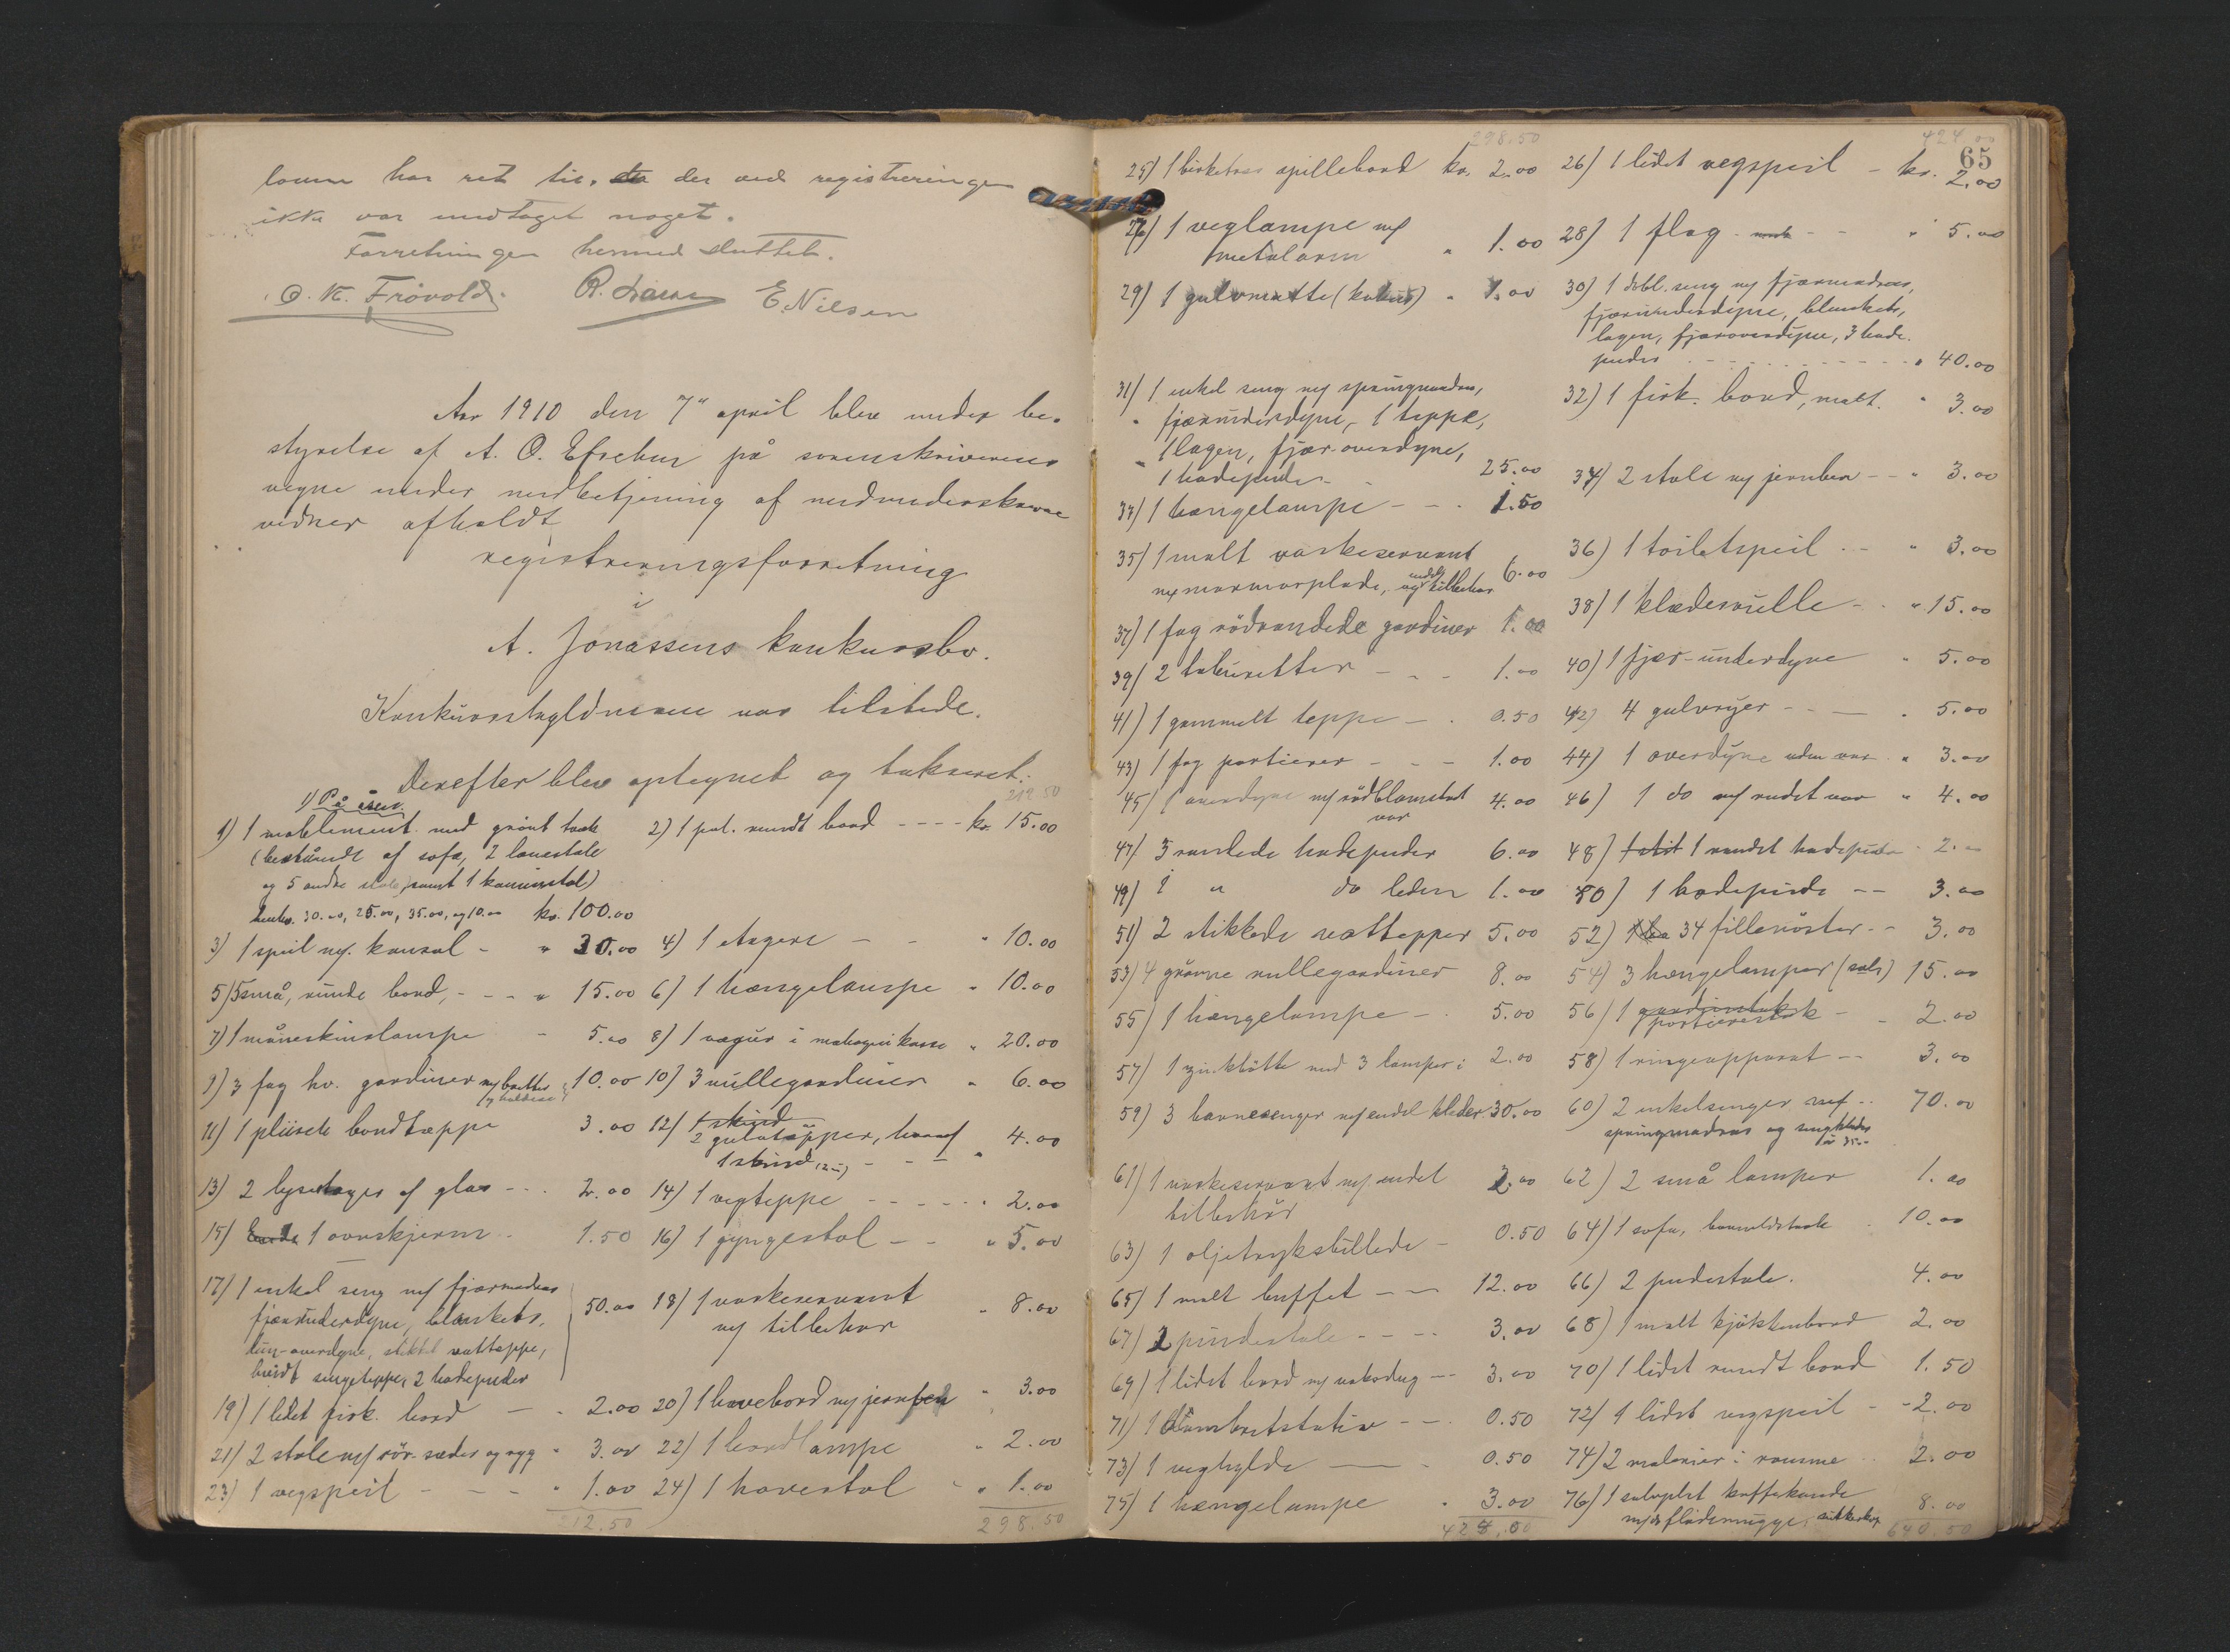 loven har ret til, da der ved registreringen
ikke var undtaget noget.
Forretningen hermed sluttet.
O. K. Frövold. R. E. Nilsen
Aar 1910 den 7" april blev under be-
styrelse af A. O. på sorenskriverens
vegne under medbetjening af medunderskrevne
vidner afholdt
registreringsforretning
i
A. Jonassens konkursbo.
Konkursskyldneren var tilstede.
Derefter blev optegnet og takseret:
212.50
1) På åsen.
1) 1 möblement med grönt træk
(bestående af sofa, 2 lænestole
og 5 andre stole, samt 1 kaminstol)
henhv. 30.00, 25.00, 35.00, og 10.00 kr. 100.00
2) 1 pol. rundt bord - - - - kr. 15.00
3) 1 speil m/ konsol - " 30.00
4) 1 etagere - - " 10.00
5) 5 små, runde bord, - - - " 15.00
6) 1 hængelampe " 10.00
7) 1 måneskinslampe - 5.00
8) 1 vægur i mahognikasse " 20.00
9) 3 fag hv. gardiner m/ bretter og holdere 10.00
10) 3 rullegardiner " 6.00
11) 1 plüsch bordtæppe 3.00
12) 1 skind
2 gulvtæpper, hvoraf
1 skind (2.-) - - - " 4.00
13) 2 lysestager af glas - - . 2.00
14) 1 vegteppe - - - - - " 2.00
15) 1 ovnskjerm - 1.50
16) 1 gyngestol - - " 5.00
17) 1 enkel seng m/ fjærmadras
fjærunderdyne, blankets,
dun-overdyne, stikket vattæppe,
hvidt sengeteppe, 2 hodepuder
50.00
18) 1 vaskeservant
m/ tilbehør " 8.00
19) 1 lidet firk. bord - - 2.00
20) 1 havebord m/ jernben " 3.00
21) 2 stole m/ rör-sæder og ryg " 3.00
22) 1 bordlampe " 2.00
23) 1 vegspeil - - - " 1.00
24) 1 havestol " 1.00
212.50
298.50
298.50
424.00
65
25) 1 birketræs spillebord kr. 2.00
26) 1 lidet vegspeil - kr. 2.00
27) 1 veglampe m/
metalarm " 1.00
28) 1 flag - - - " 5.00
29) 1 gulvmatte (kokus) " 1.00
30) 1 dobl. seng m/ fjærmadras,
fjærunderdyne, blankets,
lagen, fjæroverdyne, 3 hode-
puder - - - - - " 40.00
31) 1 enkel seng m/ springmadras,
fjærunderdyne, 1 teppe,
1 lagen, fjær-overdyne,
1 hodepude - 25.00
32) 1 firk. bord, malt. " 3.00
33) 1 hængelampe - - . 1.50
34) 2 stole m/ jernben - - " 3.00
35) 1 malt vaskeservant
m/ marmorplade, og endel tilbehør 6.00
36) 1 toiletspeil - - " 3.00
37) 1 fag rödrandede gardiner 1.00
38) 1 klæderulle - . " 15.00
39) 2 taburetter - - - 1.00
40) 1 fjær-underdyne " 5.00
41) 1 gammelt teppe - . 0.50
42) 4 gulvryer - - - . 5.00
43) 1 fag portierer - - - 1.00
44) 1 overdyne uden var " 3.00
45) 1 overdyne m/ rödblomstret
var 4.00
46) 1 do m/ rudet var " 4.00
47) 3 randede hodepuder 6.00
48) 1 randet hodepude 2.00
49) 1 " do liden 1.00
50) 1 hodepude - - 3.00
51) 2 stikkede vattepper 5.00
52) 34 filleröster - - 3.00
53) 4 grönne rullegardiner 8.00
54) 3 hængelamper (sals) 15.00
55) 1 hængelampe - . 5.00
56) 1 gardinstok
portierestok - - 2.00
57) 1 zinkbötte med 3 lamper i 2.00
58) 1 ringeapparat - - 3.00
59) 3 barnesenger m/ endel klæder 30.00
60) 2 enkelsenger m/ - - 70.00
springmadras og sengklæder
à 35.-
61) 1 vaskeservant m/ endel
tilbehör 2.00
62) 2 små lamper 1.00
63) 1 oljetryksbillede - 0.50
64) 1 sofa, bomuldstræk . 10.00
65) 1 malt buffet - - 12.00
66) 2 pudestole. 4.00
67) 2 pindestole - - - - 3.00
68) 1 malt kjökkenbord 2.00
69) 1 lidet bord m/ voksdug - - 3.00
70) 1 lidet rundt bord 1.50
71) 1 - - . 0.50
72) 1 lidet vegspeil - - 2.00
73) 1 veghylde - - 0.50
74) 2 malerier i ramme - - 2.00
75) 1 hængelampe " 3.00
76) 1 sølvplet kaffekande
m/ do flödemugge, sukkerkop 8.00
640.50